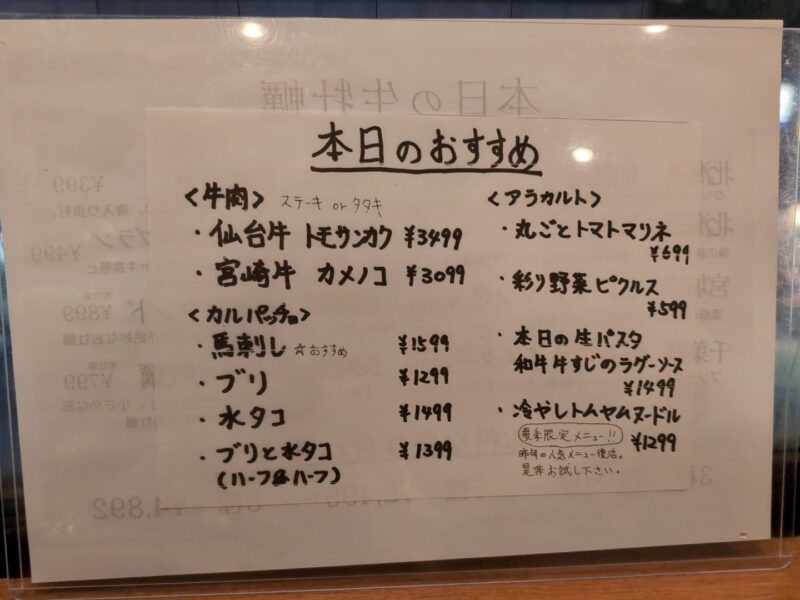 本日のおすすめ
<牛肉> ステーキ or タタキ
・仙台牛 トモサンカク ¥3499
・宮崎牛 カメノコ ¥3099
<カルパッチョ>
・馬刺し ☆おすすめ ¥1599
・ブリ ¥1299
・水タコ ¥1499
・ブリと水タコ ¥1399
(ハーフ&ハーフ)
<アラカルト>
・丸ごとトマトマリネ
¥699
・彩り野菜ピクルス
¥599
・本日の生パスタ
和牛牛すじのラグーソース
¥1499
・冷やしトムヤムヌードル
夏季限定メニュー!! ¥1299
昨年の人気メニュー復活。
是非お試し下さい。
本日の生牡蠣
¥399
¥499
¥899
¥799